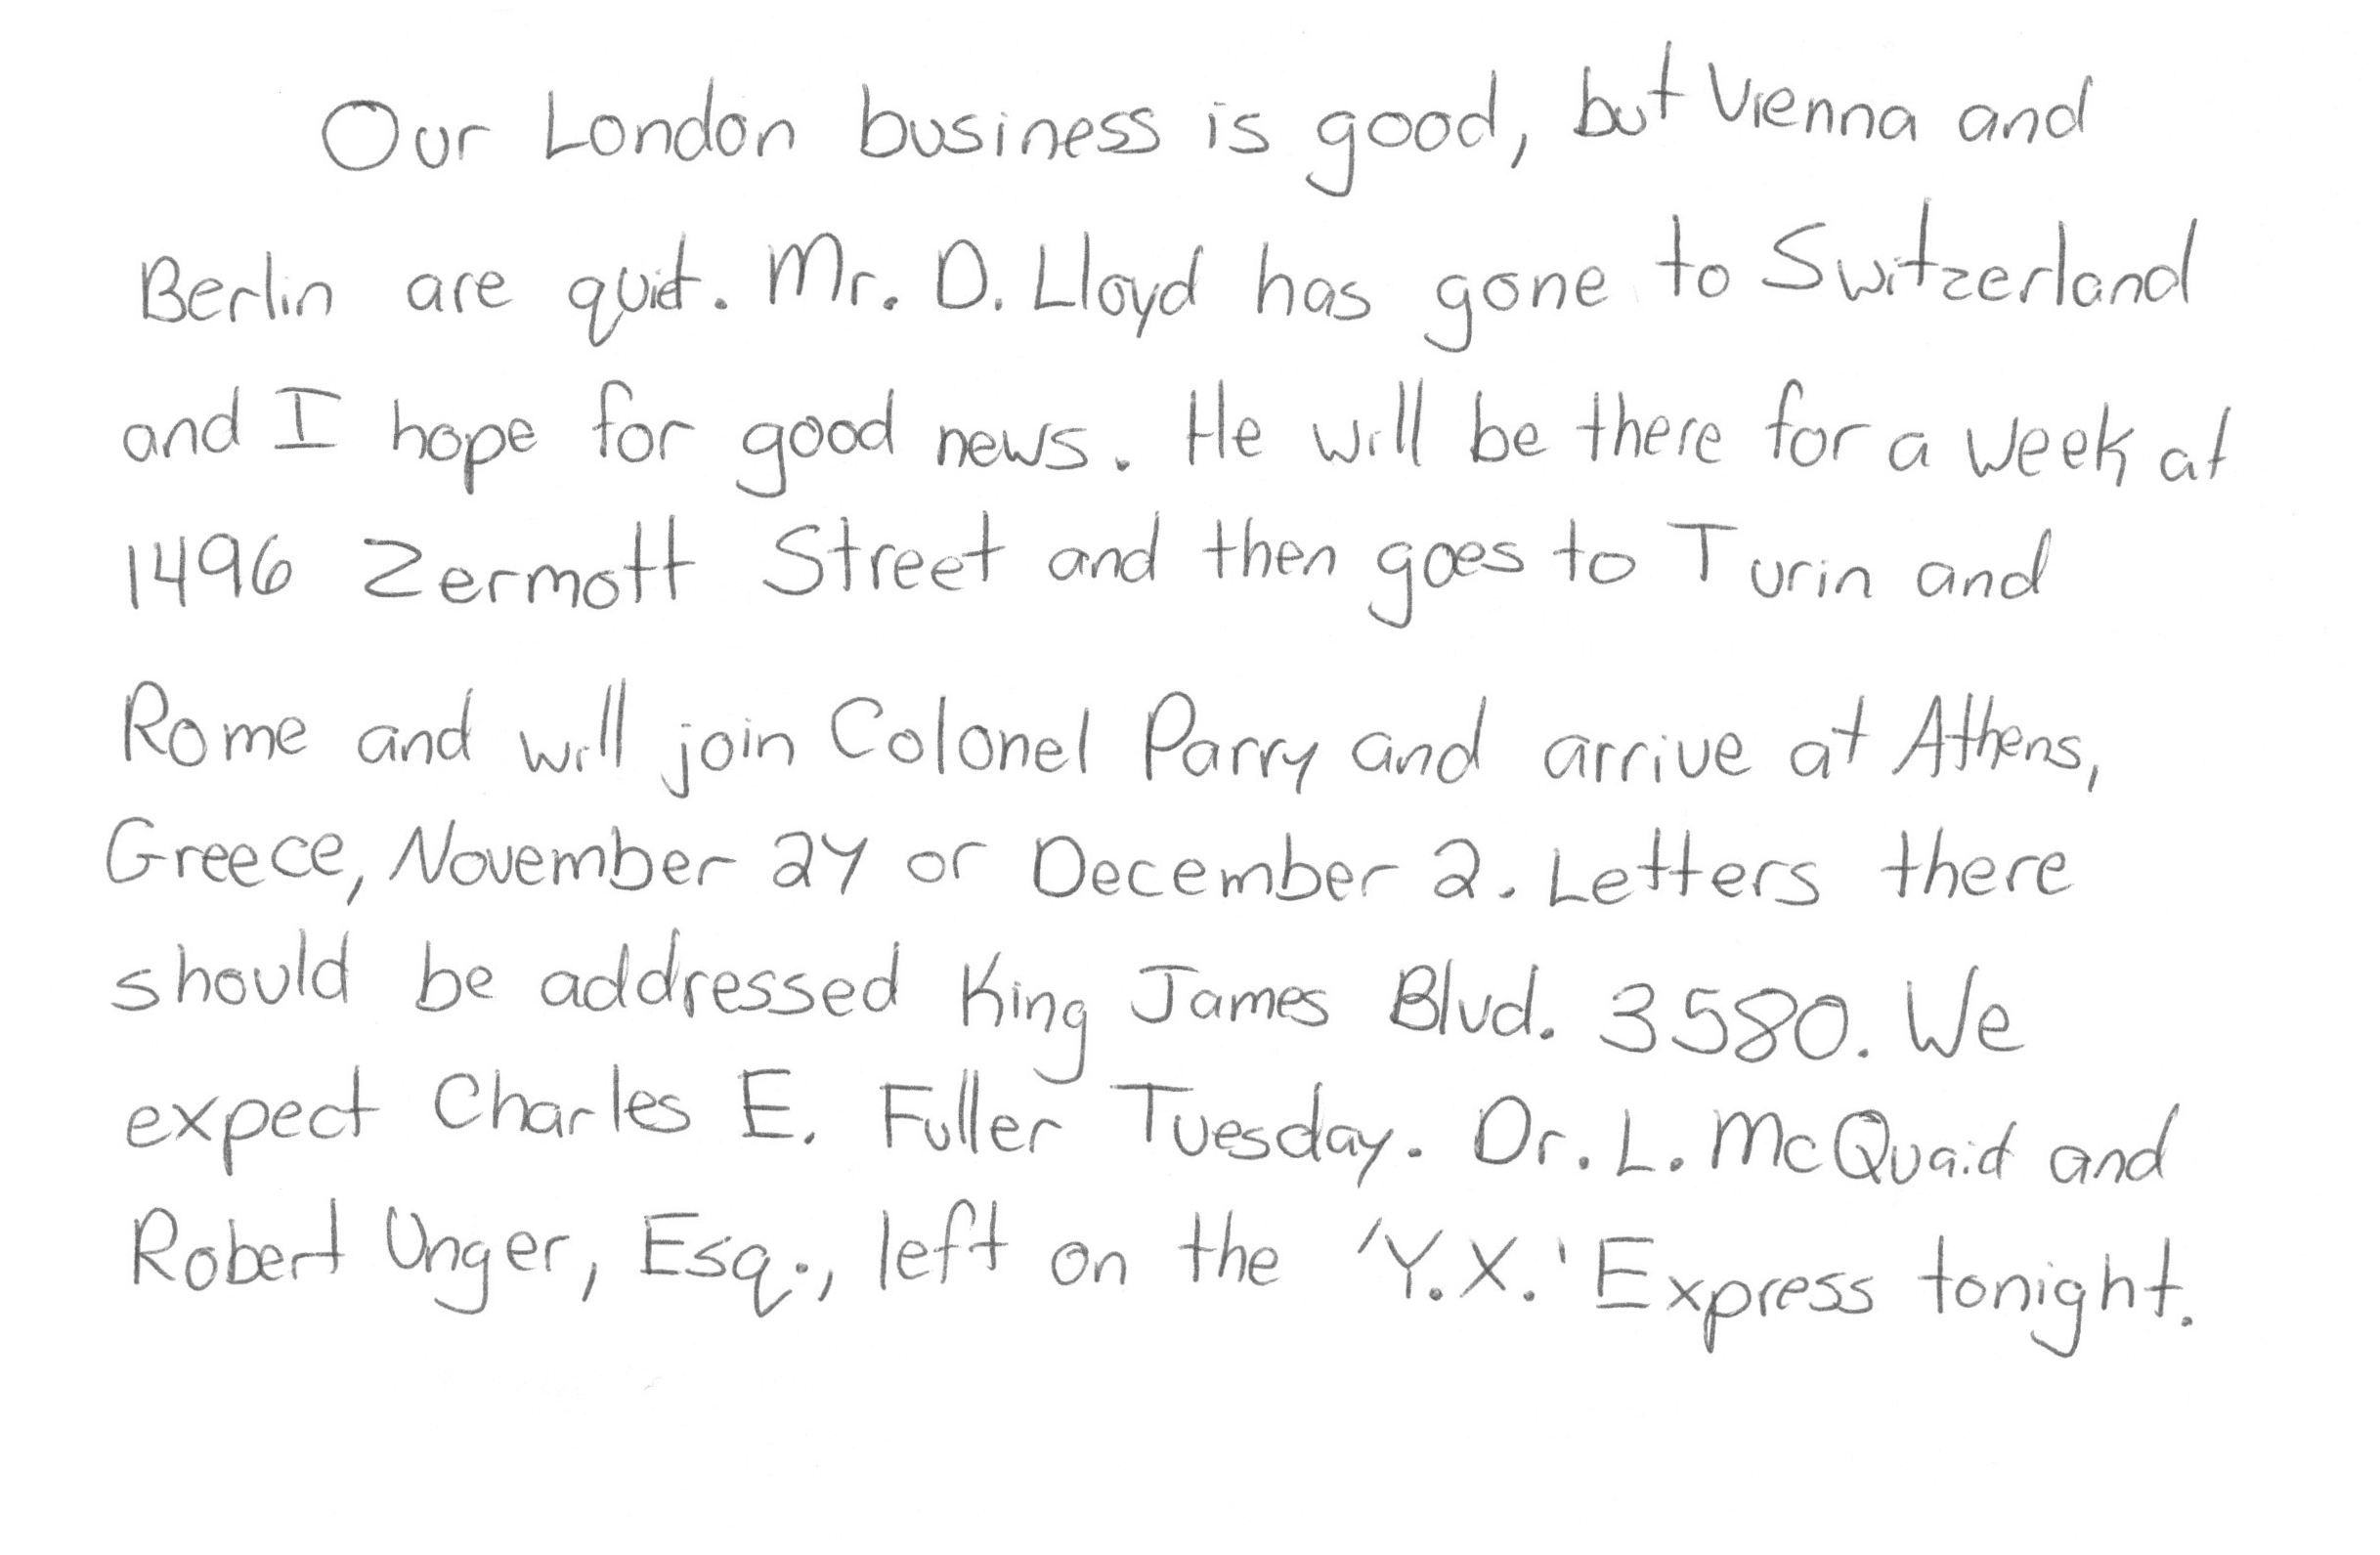 Our London business is good, but Vienna and
Berlin are quiet. Mr. D. Lloyd has gone to Switzerland
and I hope for good news. He will be there for a week at
1496 Zermott Street and then goes to Turin and
Rome and will join Colonel Parry and arrive at Athens,
Greece, November 24 or December 2. Letters there
should be addressed King James Blvd. 3580. We
expect Charles E. Fuller Tuesday. Dr. L. McQuaid and
Robert Unger, Esq., left on the 'Y.X.' Express tonight.